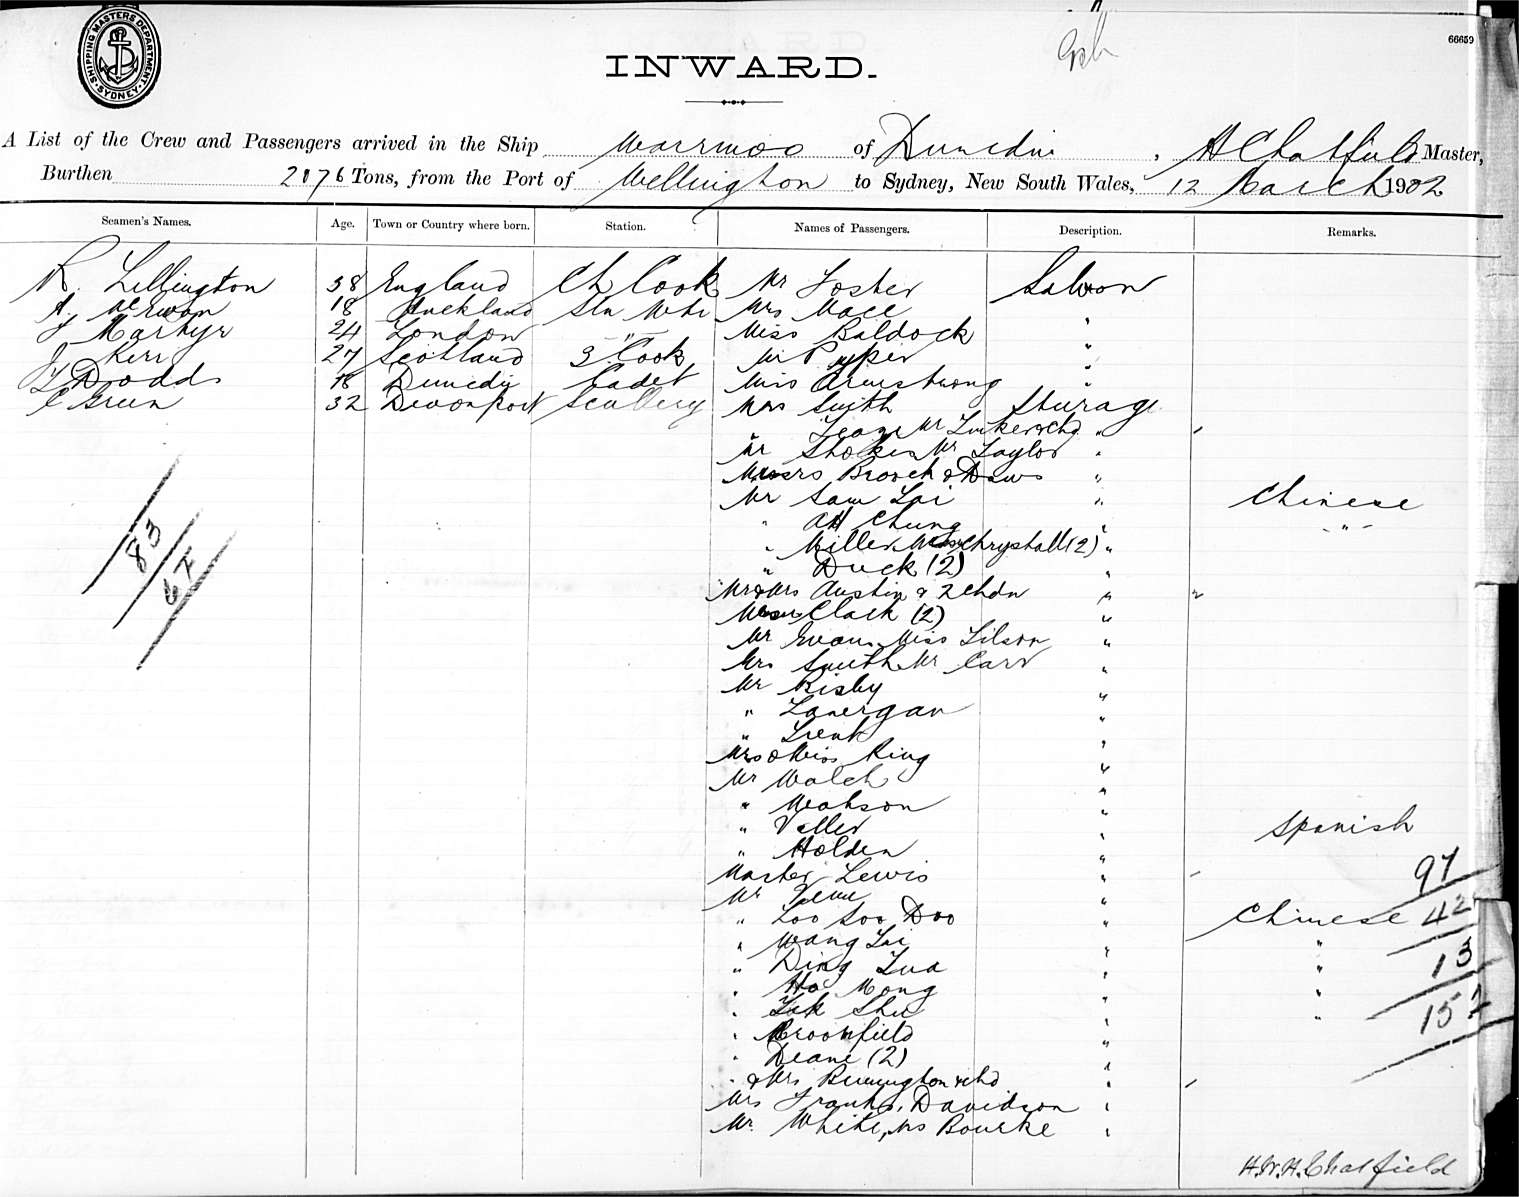 SHIPPING MASTERS DEPARTMENT SYDNEY
66659
INWARD.
A List of the Crew and Passengers arrived in the Ship Warrimoo of Dunedin, A Chatfield Master,
Burthen 2076 Tons, from the Port of Wellington to Sydney, New South Wales, 12 March 1902
Seamen's Names. Age. Town or Country where born. Station. Names of Passengers. Description. Remarks.
R. Lillington 38 England Ch Cook Mr Foster Saloon
A. McEwan 18 Auckland Mrs Mace "
J Martyr 24 London " Miss Baldock "
J Kerr 27 Scotland 3 Cook Mr Pyper "
J Dodds 18 Dunedin Cadet Miss Armstrong "
C Green 32 Devonport Scullery Mrs Smith Sturage
" Mr "
Mr Stokes Mr Taylor "
Messrs & Daws "
Mr Sam Lai " Chinese
" Ah Chung " "
" Miller Chrystall (2) "
" Duck (2) "
Mr & Mrs Austin & 2 Chdn "
Clark (2) "
Mr Evans Miss "
Mrs Smith Mr Carr "
Mr Risby "
" Lanergan "
" "
Mrs & Miss King "
Mr Walch "
" "
" Valler " Spanish
" Holden "
Master Lewis "
Mr "
" Loo Soo Doo " Chinese
" Wang Lai " "
" Ding Lua " "
" Ho Mong " "
" Shu " "
" Broomfield "
" Deane (2) "
" & Mrs Rennington & chd "
Mrs Franks, Davidson "
Mr White, Bourke "
83
67
97
42
13
152
H.W.H. Chatfield